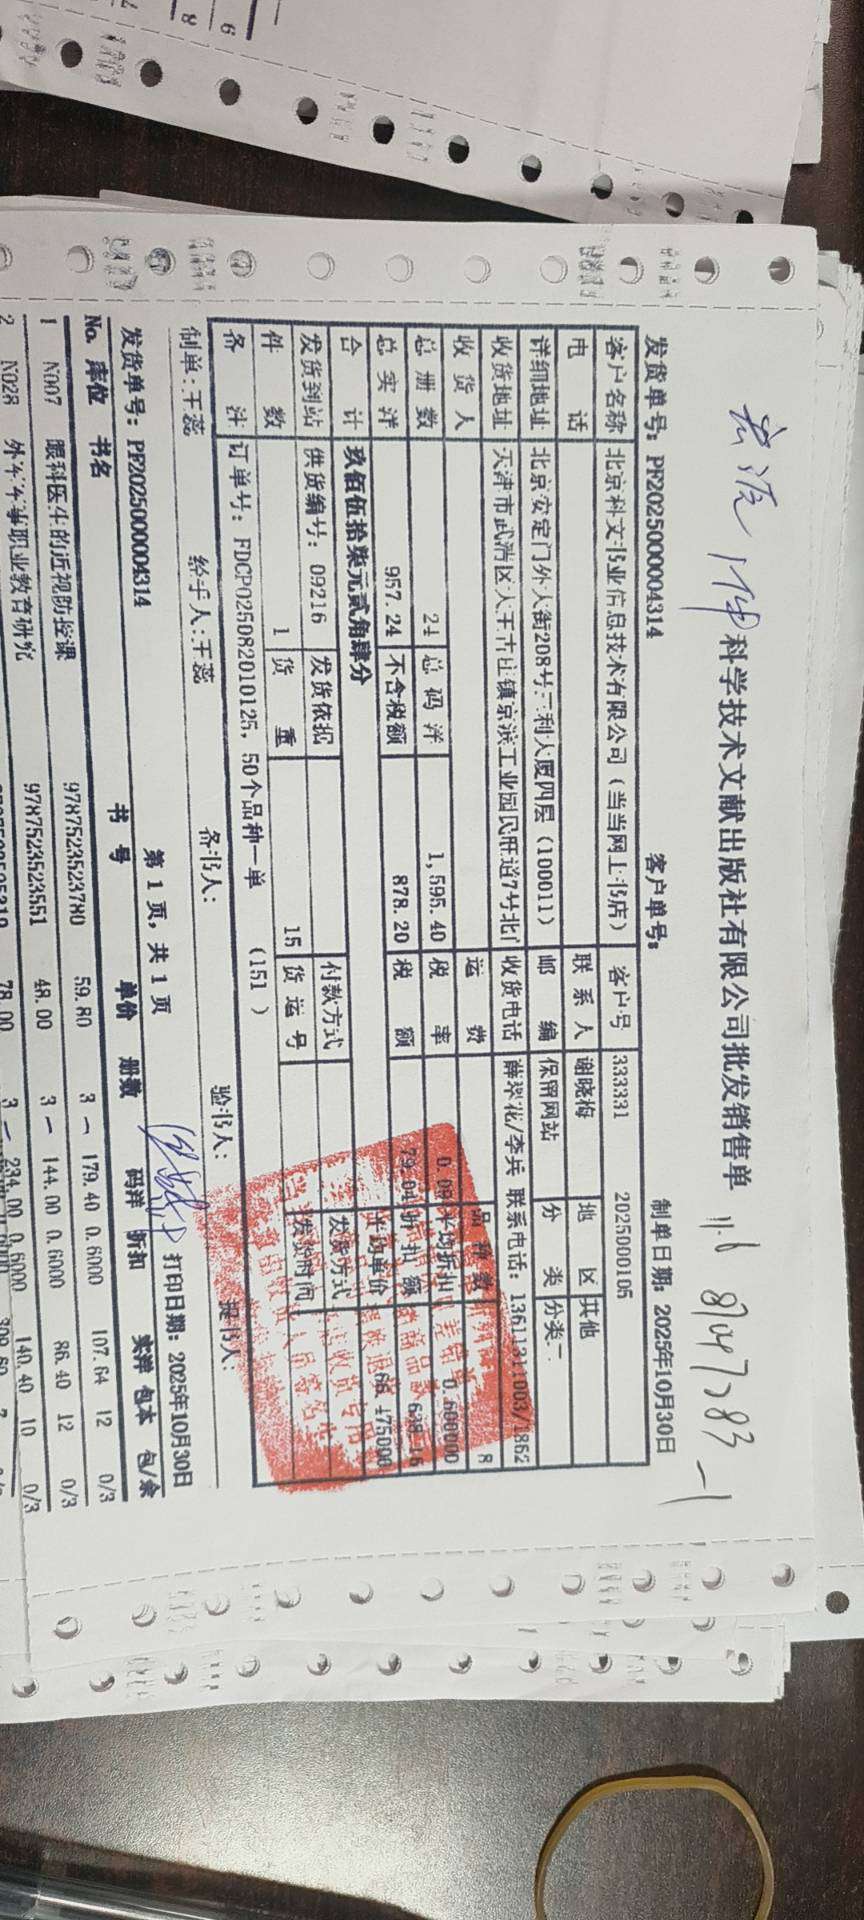 科学技术文献出版社有限公司批发销售单 11.6 87047283-1
发货单号: PF2025000004314 客户单号: 制单日期: 2025年10月30日
客户名称 北京科文书业信息技术有限公司（当当网上书店） 客户号 333331 2025000105
电 话 联系人 谢晓梅 地 区 其他
详细地址 北京安定门外大街208号三利大厦四层 (100011) 邮 编 保留网站 分 类 分类二
收货地址 天津市武清区大王古庄镇京滨工业园民旺道7号北门 收货电话 薛翠花/李兵 联系电话: 13611311003/1862
收 货 人 运 费 品 种 数 8
总 册 数 24 总 码 洋 1,595.40 税 率 0.09 平均折扣 0.600000
总 实 洋 957.24 不含税额 878.20 税 额 79.04 折 扣 额 638.16
合 计 玖佰伍拾柒元贰角肆分 平均单价 66.475000
发货到站 供货编号: 09216 发货依据 付款方式 发货方式
件 数 1 货 重 15 货 运 号 发货时间
备 注 订单号: FDCP025082010125, 50个品种一单 (151 )
制单:王蕊 经手人:王蕊 备书人: 验书人: 提书人:
发货单号: PF2025000004314 第 1 页, 共 1 页 打印日期: 2025年10月30日
No. 库位 书名 书 号 单价 册数 码洋 折扣 实洋 包本 包/余
1 N007 眼科医生的近视防控课 9787523523780 59.80 3 一 179.40 0.6000 107.64 12 0/3
2 N028 外军军事职业教育研究 9787523523551 48.00 3 一 144.00 0.6000 86.40 12 0/3
78.00 3 一 234.00 0.6000 140.40 10 0/3